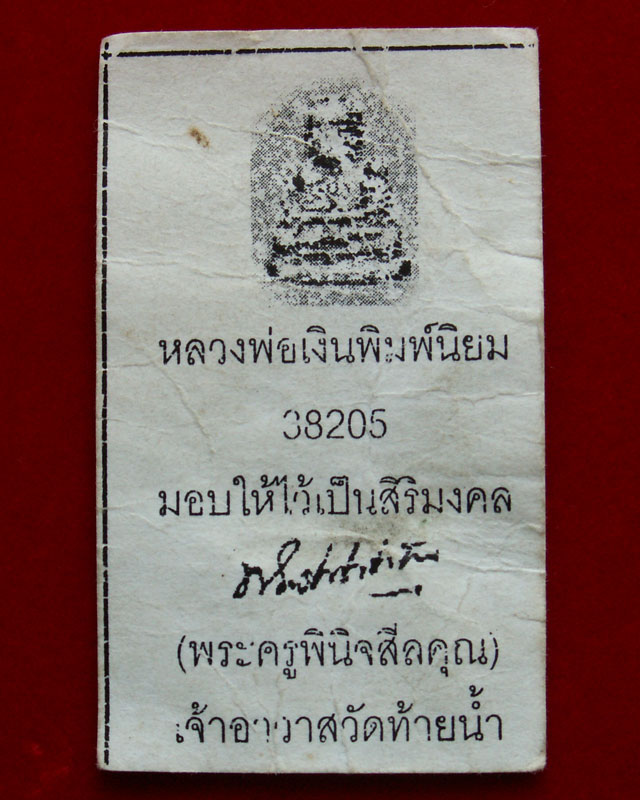 หลวงพ่อเงินพิมพ์นิยม
38205
มอบให้ไว้เป็นสิริมงคล
(พระครูพินิจสีลคุณ)
เจ้าอาวาสวัดท้ายน้ำ